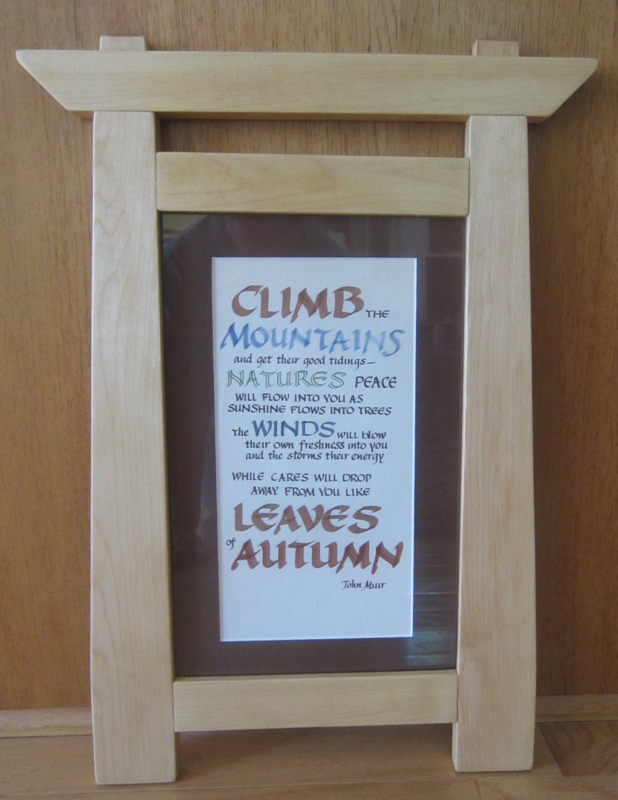 CLIMB THE
MOUNTAINS
and get their good tidings—
NATURES PEACE
WILL FLOW INTO YOU AS
SUNSHINE FLOWS INTO TREES
The WINDS will blow
their own freshness into you
and the storms their energy
WHILE CARES WILL DROP
AWAY FROM YOU LIKE
LEAVES
of AUTUMN
John Muir